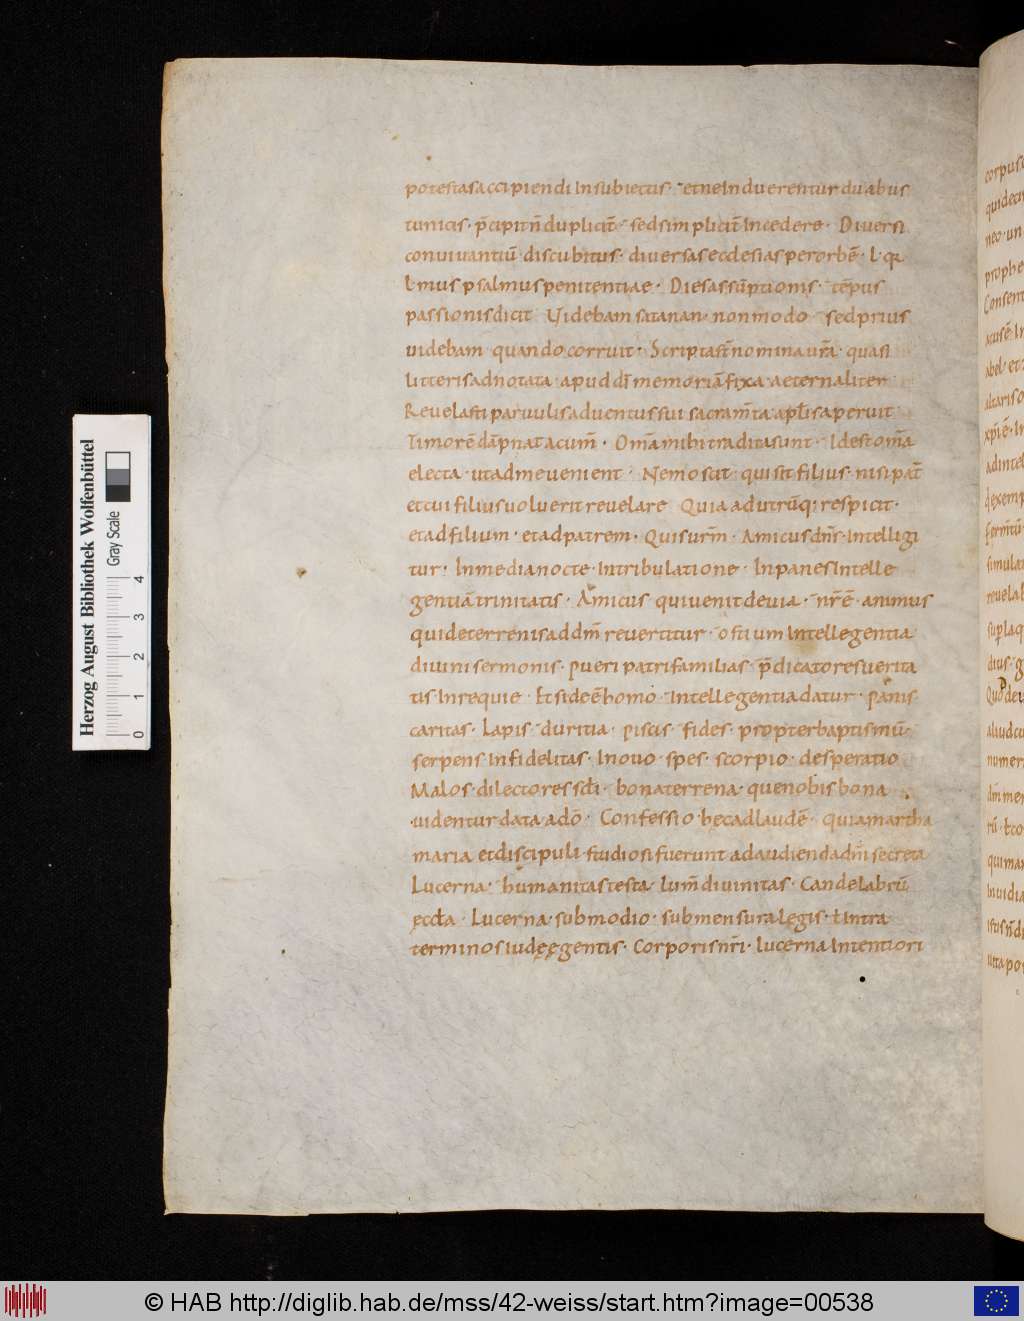 potestas accipiendi in subiectis · et ne induerentur duabus
tunicis · p̄cipit n̄ duplicit̄ sed simplicit̄ incedere · Diversi
convivantiū discubitus · diversas ecclesias per orbē · l · q
l · mus psalmus penitentiae · Dies assūptionis · tēpus
passionis dicit Videbam satanan · non modo sed prius
videbam · quando corruit · Scripta st̄ nomina vr̄a · quasi
litteris adnotata · apud dm̄ memoriā fixa aeternaliter
Revelasti parvulis adventus sui sacram̄ta aplis aperuit
Timorē dāpnat acum̄ · Om̄a mihi tradita sunt · Id est om̄a
electa · ut ad me venient · Nemo scit · qui sit filius · nisi pat̄
et cui filius voluerit revelare Quia ad utrūq; respicit ·
et ad filium · et ad patrem · Quis ur̄m · Amicus dn̄s · intelligi
tur · In media nocte · in tribulatione · In panes intelle
gentiā trinitatis · Amicus qui venit de via · nr̄ē · animus
qui de terrenis ad dm̄ revertitur · ostium intellegentia
divini sermonis · pueri patrifamilias · p̄dicatores verita
tis in requie · Et si deē homo · intellegentia datur · panis
caritas · Lapis duritia · piscis fides · propter baptismū ·
serpens infidelitas · In ovo · spes · scorpio · desperatio
Malos · dilectores scli · bona terrena · que nobis bona
· videntur data a dō · Confessio · hec ad laudē · quia martha
maria et discipuli studiosi fuerunt ad audienda dm̄i secreta
Lucerna · humanitas testa lum̄ divinitas · Candelabrū
ęccła · Lucerna · sub modio · sub mensura legis · ł intra
terminos iudęę gentis · Corporis nr̄i · lucerna intentiori
Herzog August Bibliothek Wolfenbüttel
Gray Scale
0 1 2 3 4
© HAB http://diglib.hab.de/mss/42-weiss/start.htm?image=00538